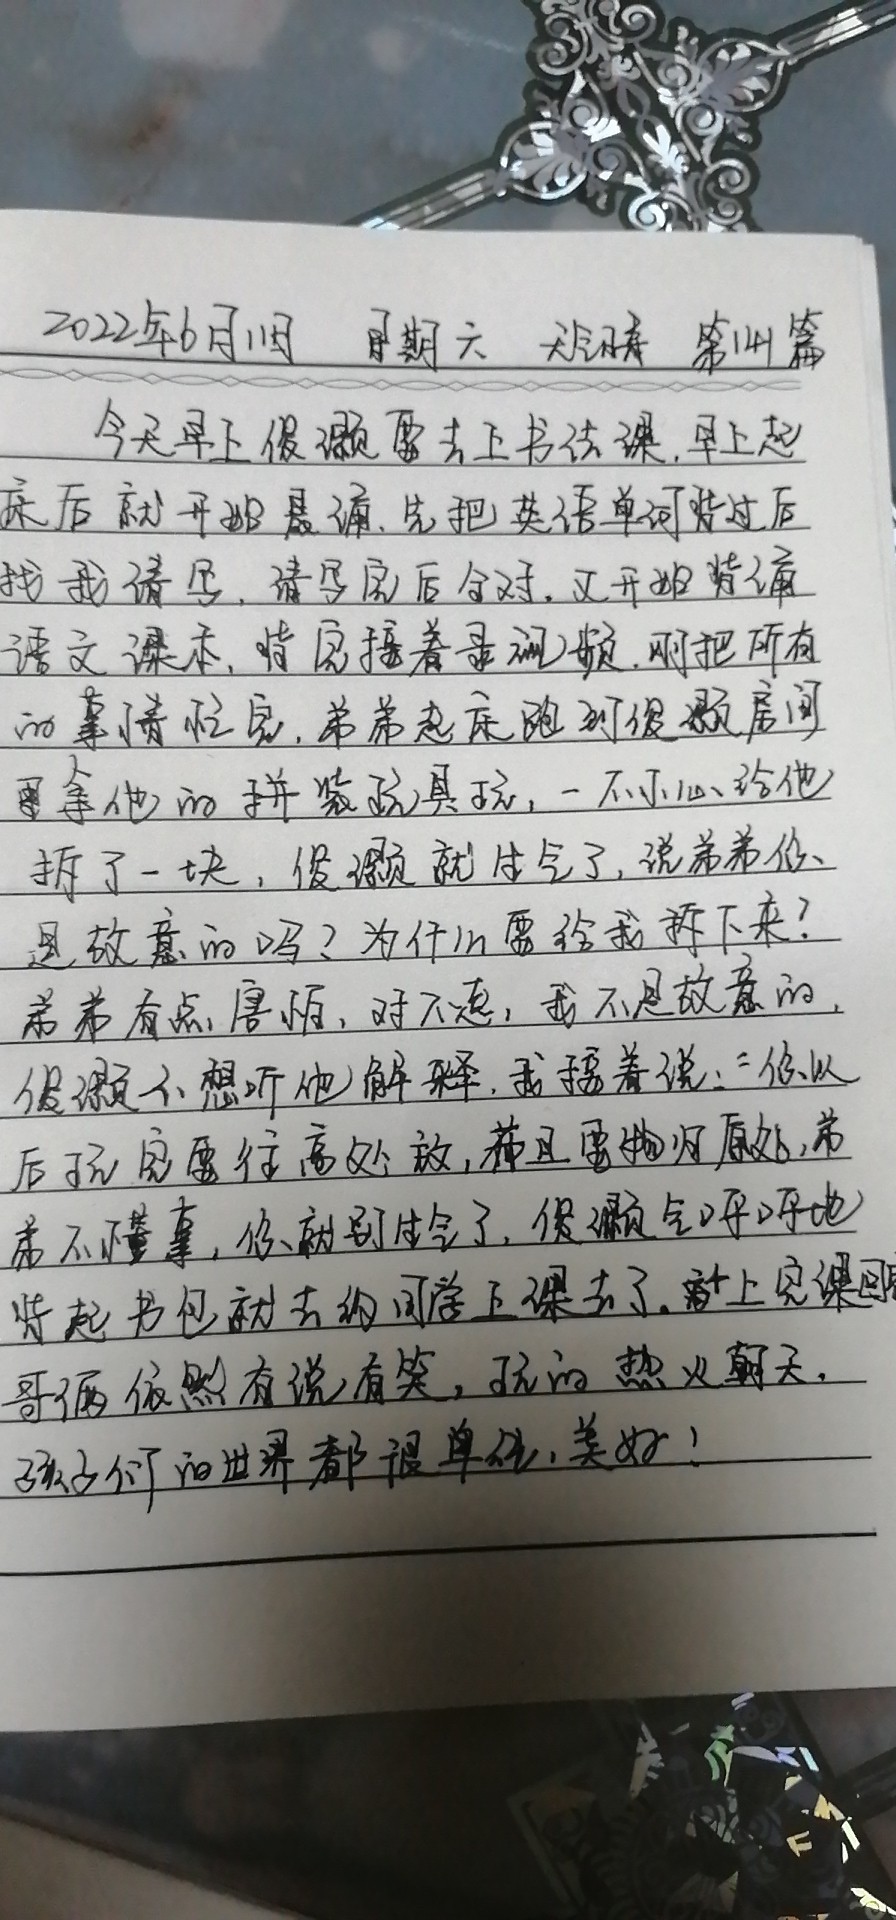 2022年6月11日 星期六 天气晴 第141篇
今天早上俊灏要去上书法课,早上起
床后就开始晨诵,先把英语单词背过后
找我请写,请写完后全对,又开始背诵
语文课本,背完接着录视频,刚把所有
的事情忙完,弟弟起床跑到俊灏房间
拿他的拼装玩具玩,一不小心给他
拆了一块,俊灏就生气了,说弟弟你
是故意的吗?为什么要给我拆下来?
弟弟有点害怕,对不起,我不是故意的,
俊灏不想听他解释,我接着说:“你以
后玩完要往高处放,而且要物归原处,弟
弟不懂事,你就别生气了,俊灏气呼呼地
背起书包就去约同学上课去了。上完课回来
哥俩依然有说有笑,玩的热火朝天,
孩子们的世界都很单纯,美好!